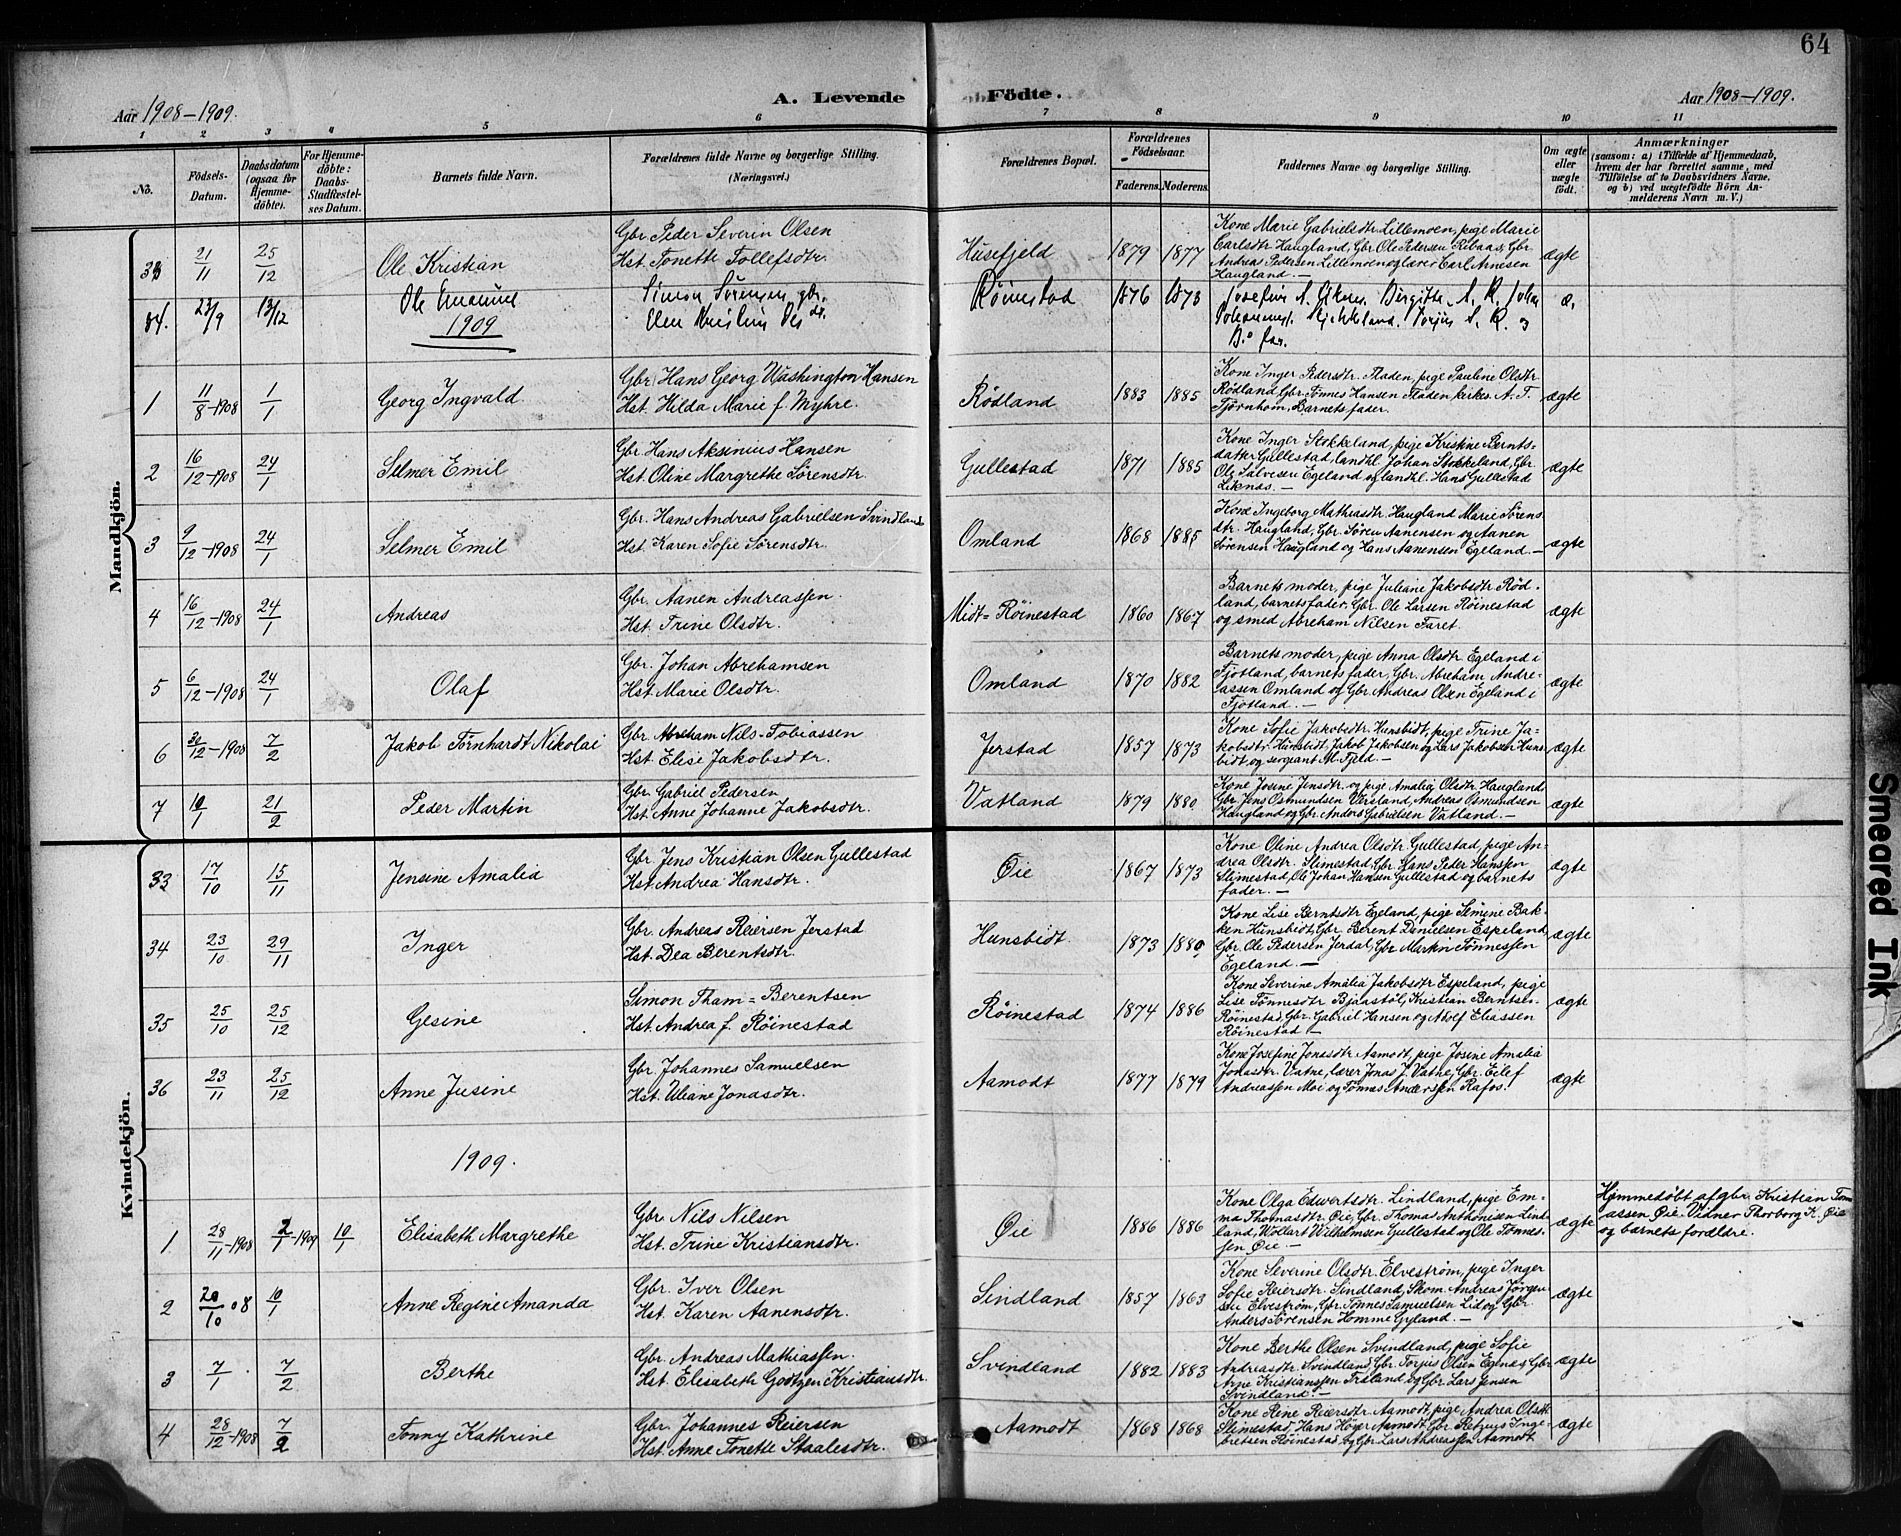 64
Aar 1908-1909.
A. Levende Födte.
Aar 1908-1909.
1 2 3 4 5 6 7 8 9 10 11
No.
Födsels-
Datum.
Daabsdatum
(ogsaa for
Hjemme-
döbte).
For Hjemme-
döbte:
Daabs-
Stadfæstel-
ses Datum.
Barnets fulde Navn.
Forældrenes fulde Navne og borgerlige Stilling.
(Næringsvei.)
Forældrenes Bopæl.
Forældrenes
Födselsaar.
Faderens. Moderens.
Faddernes Navne og borgerlige Stilling.
Om ægte
eller
uægte
födt.
Anmærkninger
(saasom: a) i Tilfælde af Hjemmedaab,
hvem der har forrettet samme, med
Tilföielse af to Daabsvidners Navne,
og b) ved uægtefödte Börn An-
melderens Navn m. V.)
Mandkjön.
33 21/11 25/12 Ole Kristian
Gbr. Peder Severin Olsen
Hst. Tonette Tollefsdtr.
Husefjeld 1879 1877
Kone Marie Gabrielsdtr. Lillemoen, pige Marie
Carlsdtr. Haugland, Gbr. Ole Pedersen Ribaas, Gbr.
Andreas Pedersen Lillemoen og lærer Carl Arnesen
Haugland. —
ægte
34. 23/9 13/12 Ole Emanuel
Simon Sörensen gbr.
Röinestad 1876 1873
Birgitte
æ.
1909
1 11/8-1908 1/1 Georg Ingvald
Gbr. Hans Georg Washington Hansen
Hst. Hilda Marie f. Myhre.
Rödland 1883 1885
Kone Inger Pedersdtr. Fladen, pige Pauline Olsdtr.
Rödland, Gbr. Tönnes Hansen Fladen, kirkes. A. T.
Tjörnhom, Barnets fader.
ægte
2 16/12-1908 24/1 Selmer Emil
Gbr. Hans Aksinius Hansen
Hst. Oline Margrethe Sörensdtr.
Gullestad 1871 1885
Kone Inger Stokkeland, pige Kristine Bernts-
datter Gullestad, landhl. Johan Stokkeland, Gbr.
Ole Salvesen Egeland og landhl. Hans Gullestad
Liknæs. —
ægte
3 9/12-1908 24/1 Selmer Emil
Gbr. Hans Andreas Gabrielsen Svindland
Hst. Karen Sofie Sörensdtr.
Omland 1868 1885
Kone Ingeborg Mathiasdtr. Haugland Marie Sörens
dtr. Haugland, Gbr. Sören Aanensen og Aanen
Sörensen Haugland og Hans Aanensen Egeland. —
ægte
4 16/12-1908 24/1 Andreas
Gbr. Aanen Andreassen.
Hst. Trine Olsdtr.
Midt-Röinestad 1860 1867
Barnets moder, pige Juliane Jakobsdtr. Röd-
land, barnets fader, Gbr. Ole Larsen Röinestad
og smed Abreham Nilsen Faret.
ægte
5 6/12-1908 24/1 Olaf
Gbr. Johan Abrehamsen
Hst. Marie Olsdtr.
Omland 1870 1882
Barnets moder, pige Anna Olsdtr. Egeland i
Fjotland, barnets fader, Gbr. Abreham Andre-
assen Omland og Gbr. Andreas Olsen Egeland i
Fjotland. —
ægte
6 30/12-1908 7/2 Jakob Törnhardt Nikolai
Gbr. Nils Tobiassen
Hst. Elise Jakobsdtr.
Jerstad 1857 1873
Kone Sofie Jakobsdtr. Hunsbidt, pige Trine Ja-
kobsdtr. Hunsbidt, Jakob Jakobsen og Lars Jakobsen Huns-
bidt, og sergeant M. Fjeld. —
ægte
7 10/1 21/2 Peder Martin
Gbr. Gabriel Pedersen
Hst. Anne Johanne Jakobsdtr.
Vatland 1879 1880
Kone Josine Jensdtr. og pige Amalia Olsdtr. Haugland
Gbr. Jens Osmundsen Versland, Andreas Osmundsen
Haugland og Gbr. Anders Gabrielsen Vatland. —
ægte
Kvindekjön.
33 17/10 15/11 Jensine Amalia
Gbr. Jens Kristian Olsen Gullestad
Hst. Andrea Hansdtr.
Öie 1867 1873
Kone Oline Andrea Olsdtr. Gullestad, pige An-
drea Olsdtr. Slimestad, Gbr. Hans Peder Hanssen
Slimestad, Ole Johan Hansen Gullestad og barnets
fader. —
ægte
34 23/10 29/11 Inger
Gbr. Andreas Reiersen Jerstad
Hst. Dea Berentsdtr.
Hunsbidt. 1873 1880
Kone Lise Berntsdtr. Egeland, pige Semine Bak-
ken Hunsbidt, Gbr. Berent Danielsen Espeland,
Gbr. Ole Pedersen Jerdal, Gbr. Martin Tönnessen
Egeland. —
ægte
35 25/10 25/12 Gesine
Simon Tham-Berentsen
Hst. Andrea f. Röinestad
Röinestad 1874 1886
Kone Severine Amalia Jakobsdtr. Espeland, pige
Lise Tönnesdtr. Bjaastöl, Kristian Berntsen
Röinestad, Gbr. Gabriel Hansen og Adolf Eliassen
Röinestad —
ægte
36 23/11 25/12 Anne Jusine
Gbr. Johannes Samuelsen
Hst. Uliane Jonasdtr.
Aamodt 1877 1879
Kone Josefine Jonasdtr. Aamodt, pige Josine Amalia
Jonasdtr. Vatne, lærer Jonas J. Vatne, Gbr. Eilef
Andreassen Moi og Tönnes Anderssen Rafos.
ægte
1909.
1 28/11-1908 2/1 1909 10/1 Elisabeth Margrethe
Gbr. Nils Nilsen
Hst. Trine Kristiansdtr.
Öie 1886 1886
Kone Olga Edvertsdtr. Lindland, pige Em-
ma Thomasdtr. Öie, Gbr. Thomas Anthonisen Lind-
land, Wollart Wilhelmsen Gullestad og Ole Tönnes-
sen Öie —
ægte
Hjemmedöbt af gbr. Kristian Tom
assen Öie. Vidner Thorborg K. Öie
og barnets forældre.
2 20/10 08 10/1 Anne Regine Amanda
Gbr. Iver Olsen
Hst. Karen Aanensdtr.
Sindland 1857 1863
Kone Severine Olsdtr. Elveström, pige Inger
Sofie Reiersdtr. Sindland, Skom. Andreas Jörgen-
sen Elveström, Gbr. Tönnes Samuelsen Lid og Gbr.
Anders Sörensen Homme Gyland. —
ægte
3 7/1 7/2 Berthe
Gbr. Andreas Mathiassen.
Hst. Elisabeth Godtzen Kristiansdtr.
Svindland 1882 1883
Kone Berthe Olsen Svindland, pige Sofie
Andreasdtr. Svindland, Gbr. Torjus Olsen Egenæs, Gbr.
Arne Kristianssen Træland og Gbr. Lars Jensen
Svindland. —
ægte
4 28/12-1908 7/2 Tonny Kathrine
Gbr. Johannes Reiersen
Hst. Anne Tonette Staalesdtr.
Aamodt 1868 1868
Kone Rene Reiersdtr. Aamodt, pige Andrea Olsdtr.
Slimestad, Hans Höyer Aamodt, Gbr. Retzius Inge-
bretsen Röinestad og Gbr. Lars Andreassen Aamodt
ægte
Smeared Ink